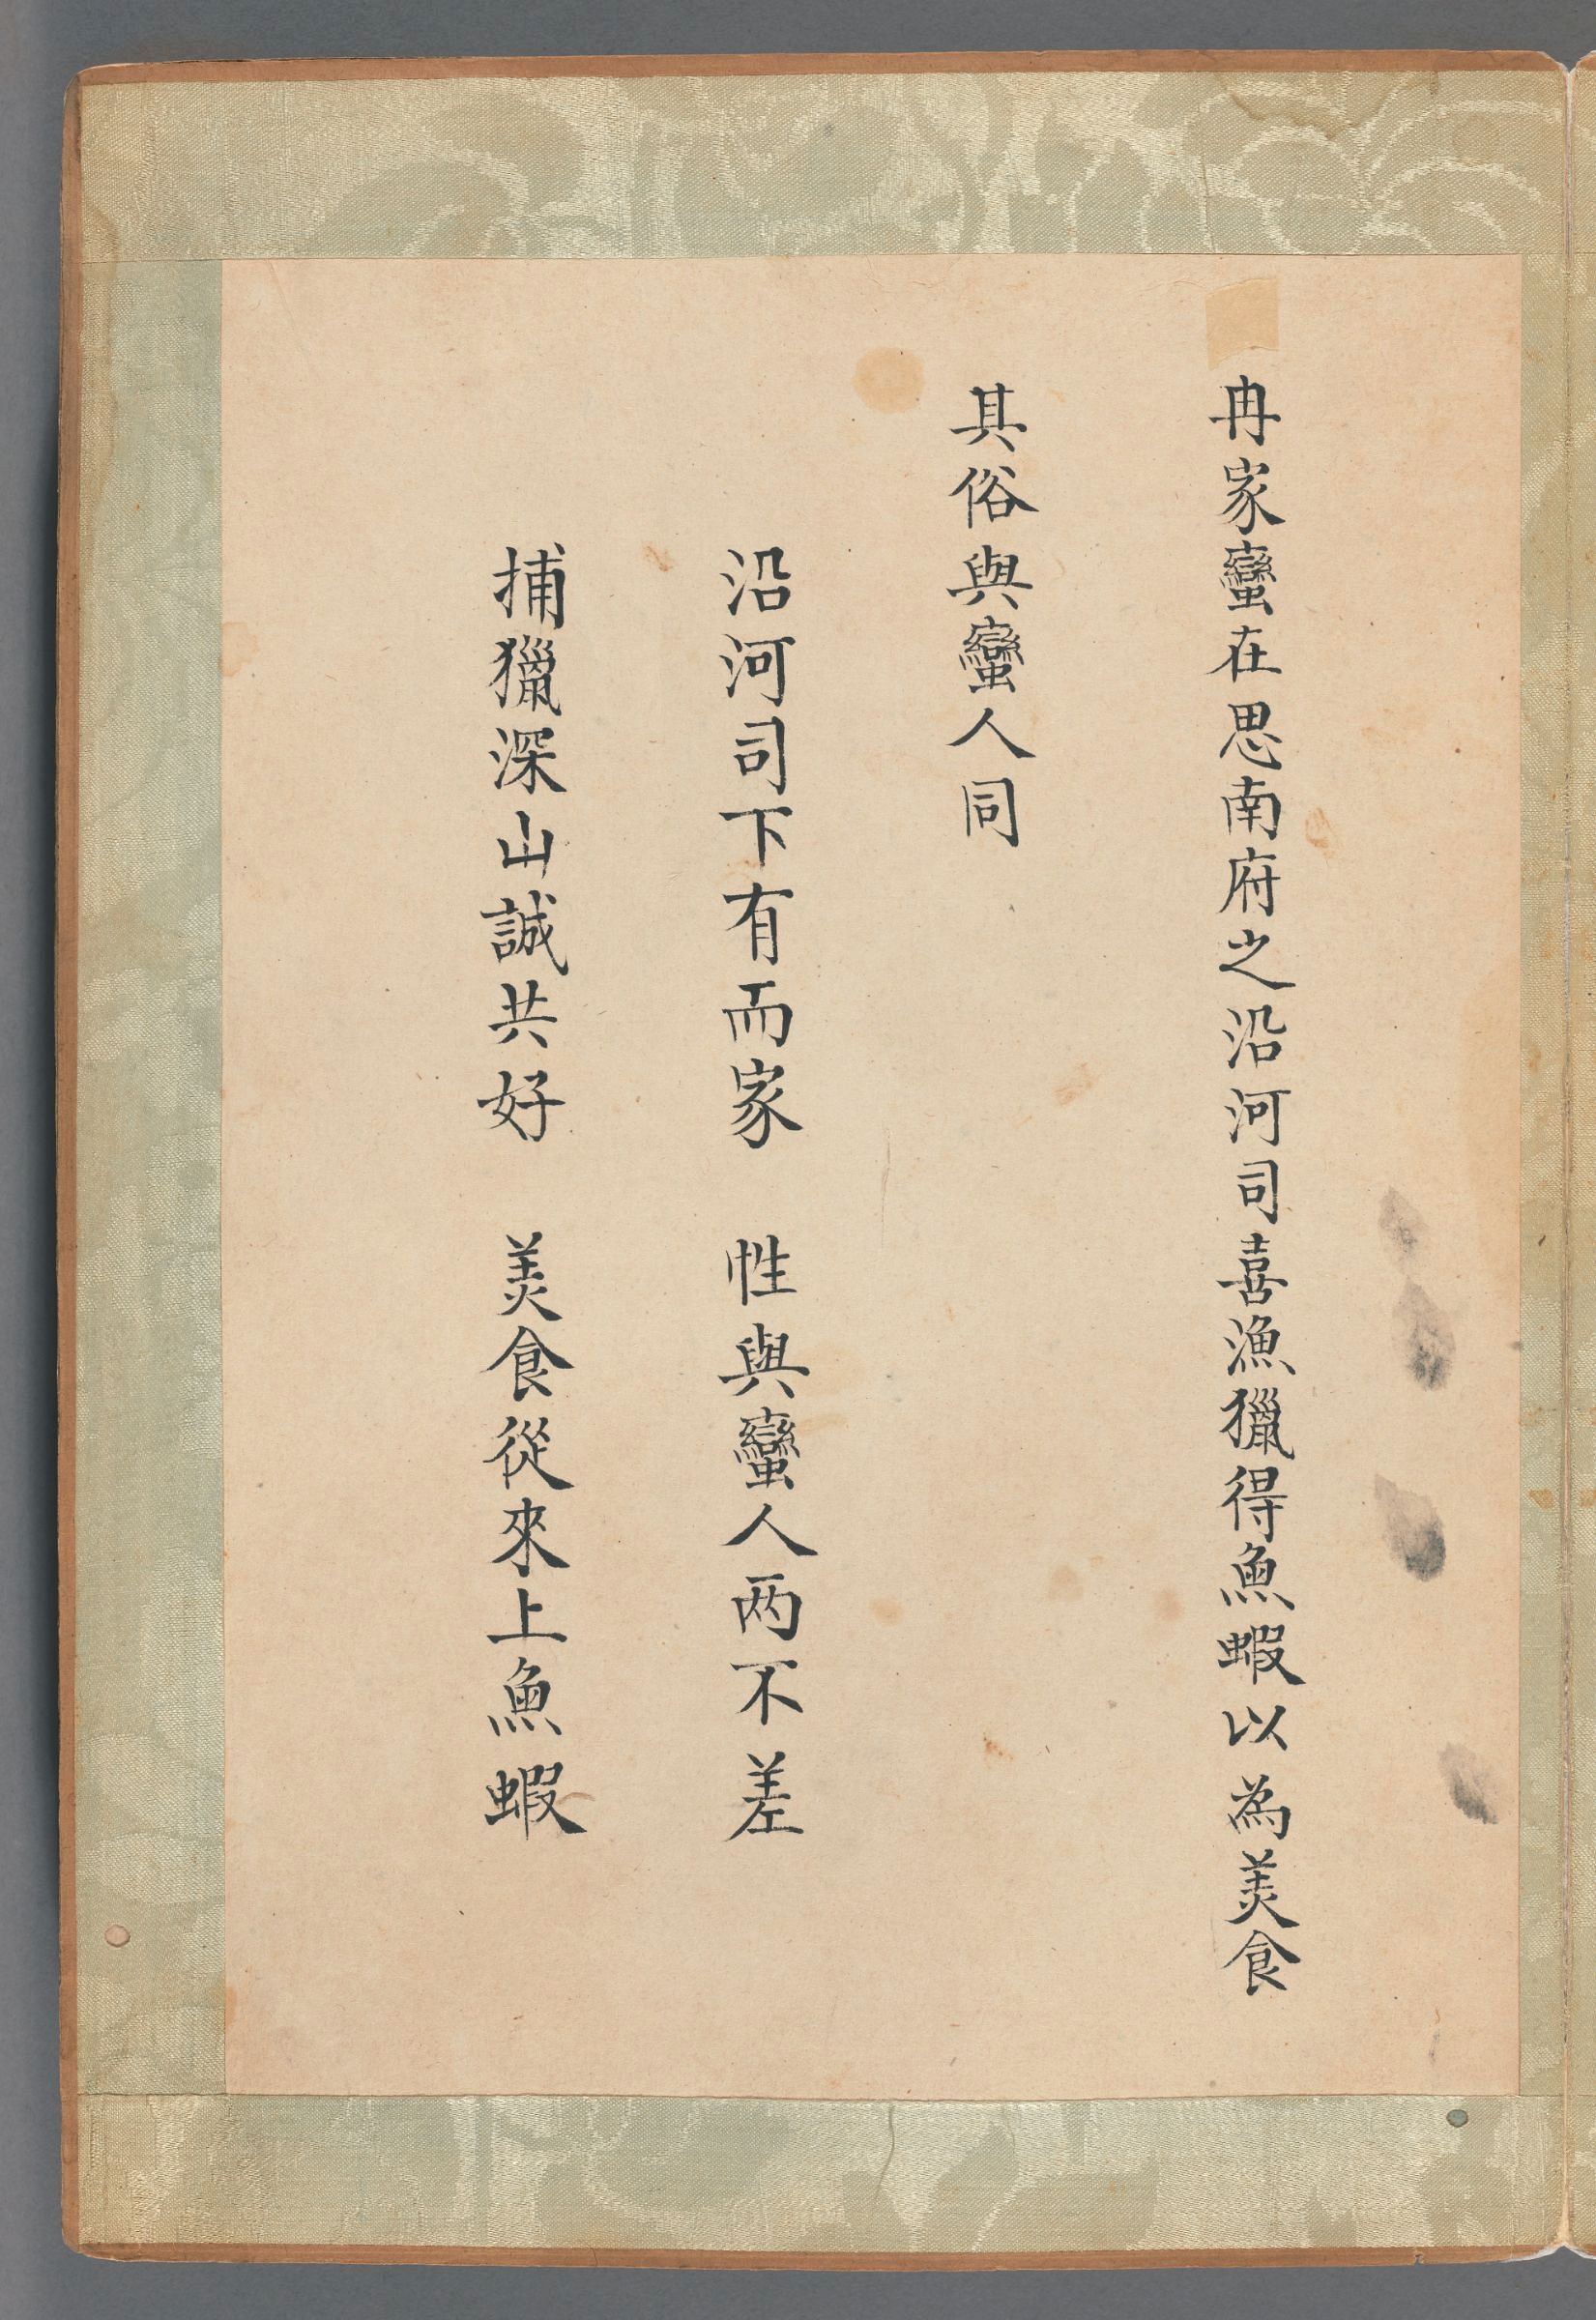 冉家蠻在思南府之沿河司喜漁獵得魚蝦以為美食
其俗與蠻人同
沿河司下有而家　性與蠻人两不差
捕獵深山誠共好　美食從來上魚蝦